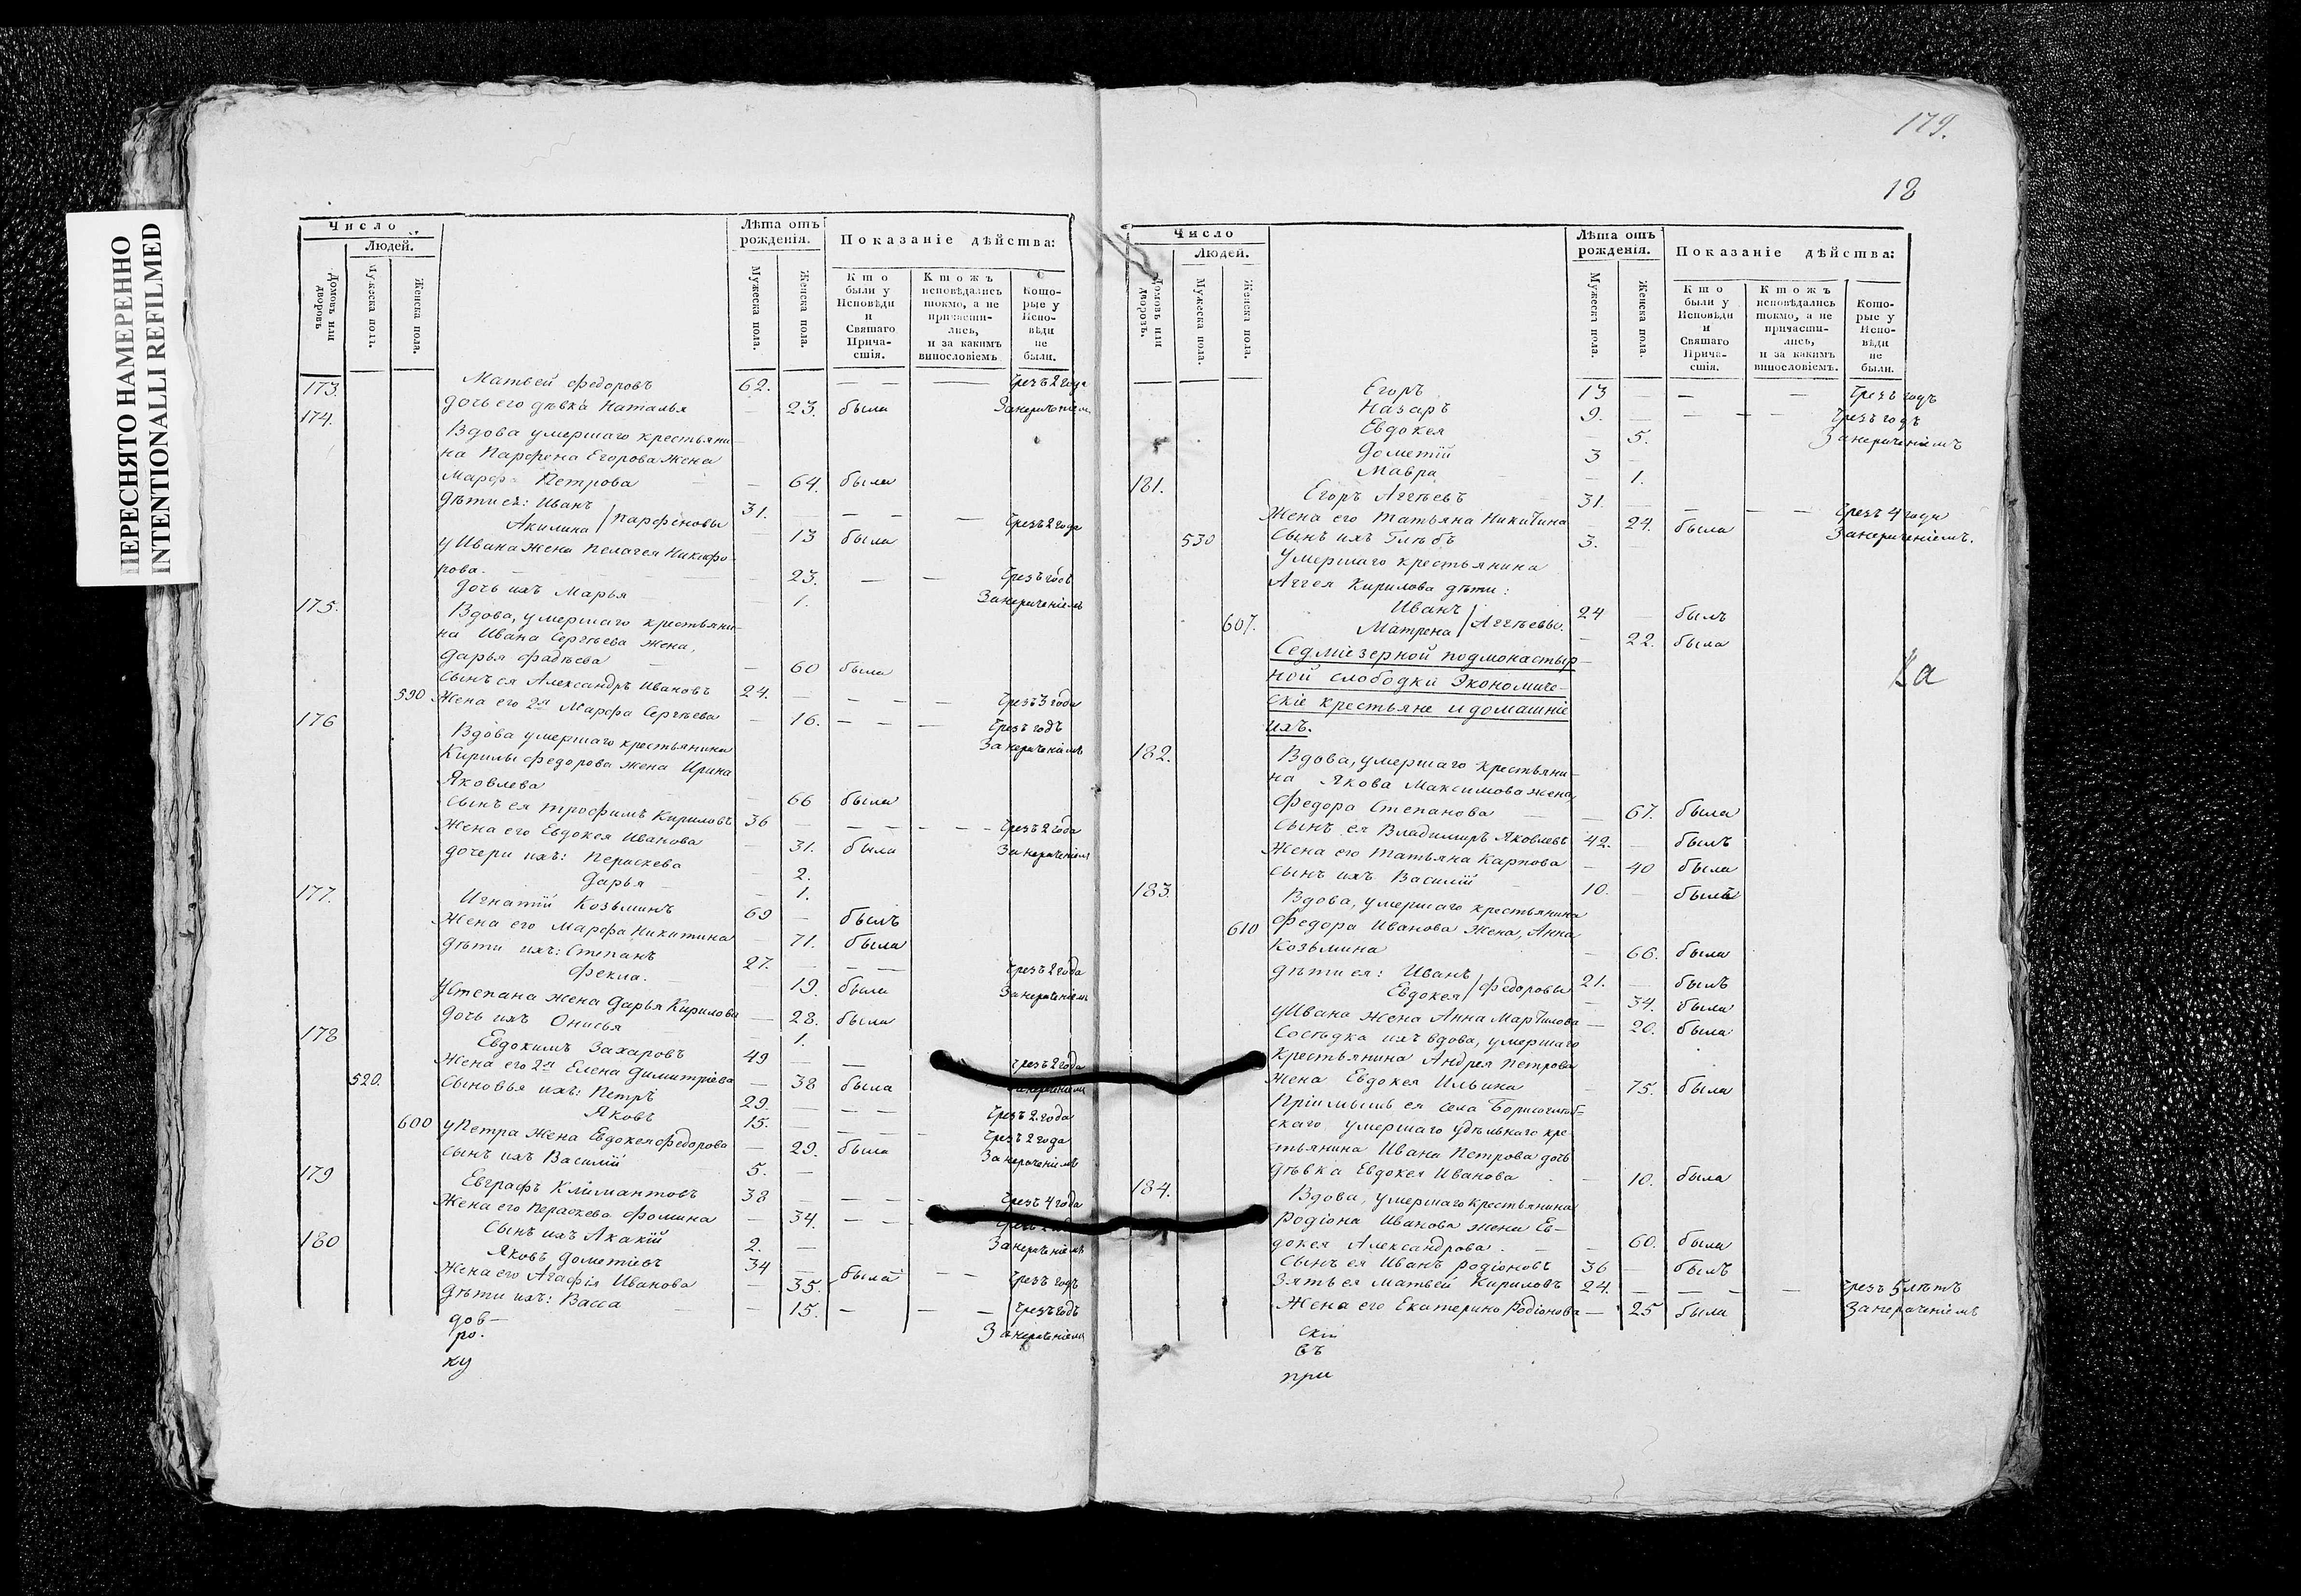 ПЕРЕСНЯТО НАМЕРЕННО
INTENTIONALLI REFILMED
Число
Людей.
Домовъ или дворовъ
Мужеска пола.
Женска пола.
Лѣта отъ рожденія.
Мужеска пола.
Женска пола.
Показаніе дѣйства:
Кто были у Исповѣди и Святаго Прича-стія.
Ктожъ исповѣдались токмо, а не причасти-лись, и за какимъ винословіемъ
Кото-рые у Испо-вѣди не были.
173. Матвей Федоровъ 62. — — — Чрезъ 2 года
дочь его дѣвка Наталья — 23. была Занерачениемъ
174. Вдова умершаго крестьяни-
на Парфена Егорова жена
Марфа Петрова — 64. была
дѣти ея: Иванъ 31. — — — — Чрезъ 2 года
Акилина / Парфеновы 13 была
у Ивана жена Пелагея Никифо-
рова. — 23. — — Чрезъ годъ
дочь ихъ Марья 1. Занерачениемъ
175. Вдова, умершаго крестьяни-
на Ивана Сергѣева жена,
Дарья Фадѣева — 60 была
Сынъ ея Александръ Ивановъ 24. — — — — Чрезъ 3 года
590 Жена его 2я Марфа Сергѣева — 16. — — — Чрезъ годъ
176 Вдова умершаго крестьянина Занерачениемъ
Кирилы Федорова жена Ирина
Яковлева — 66 была
Сынъ ея Трофимъ Кириловъ 36 — — — — Чрезъ 2 года
Жена его Евдокея Иванова — 31. была Занерачениемъ
дочери ихъ: Пераскева — 2.
Дарья — 1.
177. Игнатій Козьминъ 69 — былъ
Жена его Марфа Никитина — 71. была
дѣти ихъ: Степанъ 27. — — — Чрезъ 2 года
Фекла. 19. была Занерачениемъ
у Степана жена Дарья Кирилова — 28. была
дочь ихъ Онисья — 1.
178 Евдокимъ Захаровъ 49 — — Чрезъ 2 года
Жена его 2я Елена Димитріева — 38 была
520. Сыновья ихъ: Петръ 29. — — — Чрезъ 2 года
Яковъ 15. — — — — Чрезъ 2 года
600 у Петра жена Евдокея Федорова — 29. была Занерачениемъ
Сынъ ихъ Василий 5. —
179 Евграфъ Климантовъ 38 — — — — Чрезъ 4 года
Жена его Пераскева Фомина — 34. — —
Сынъ ихъ Акакій 2. — Занерачениемъ
180 Яковъ Дометіевъ 34 — — — Чрезъ годъ
Жена его Агафія Иванова — 35. была
дѣти ихъ: Васса — 15. — — — Чрезъ годъ
Занерачениемъ
доб-
ро.
ку
179.
18
Число
Людей.
Домовъ или дворовъ.
Мужеска пола.
Женска пола.
Лѣта отъ рожденія.
Мужеска пола.
Женска пола.
Показаніе дѣйства:
Кто были у Исповѣди и Святаго Прича-стія.
Ктожъ исповѣдались токмо, а не причасти-лись, и за какимъ винословіемъ.
Кото-рые у Испо-вѣди не были.
Егоръ 13 — — — Чрезъ годъ
Назаръ 9. — — — — Чрезъ годъ
Евдокея — 5. Занерачениемъ
Дометій 3 —
Мавра — 1.
181. Егоръ Аггѣевъ 31. — — — — Чрезъ 4 года
Жена его Татьяна Никитина — 24. была Занерачениемъ.
530 Сынъ ихъ Глѣбъ 3. —
Умершаго крестьянина
Аггея Кирилова дѣти:
Иванъ 24 — былъ
607. Матрена / Аггѣевы. — 22. была
Седміезерной подмонастыр-
ной слободки Экономиче-
скіе крестьяне и домашніе
ихъ.
Ка
182. Вдова, умершаго крестьяни-
на Якова Максимова жена,
Федора Степанова — 67. была
Сынъ ея Владимиръ Яковлевъ 42. — былъ
Жена его Татьяна Карпова — 40 была
Сынъ ихъ Василій 10. — былъ
183. Вдова, умершаго крестьянина
610 Федора Иванова жена, Анна
Козьмина — 66. была
дѣти ея: Иванъ 21. — былъ
Евдокея / Федоровы — 34. была
у Ивана жена Анна Мартилова — 20. была
Сосѣдка ихъ вдова, умершаго
крестьянина Андрея Петрова
жена Евдокея Ильина — 75. была
Пріимышъ ея села Борисоглѣб-
скаго умершаго удѣльнаго кре
стьянина Ивана Петрова дочь
дѣвка Евдокея Иванова — 10. была
184. Вдова, умершаго крестьянина
Родіона Иванова жена Ев-
докея Александрова. — 60. была
Сынъ ея Иванъ Родіоновъ 36 — былъ
Зять ея Матвей Кириловъ 24. — — — — Чрезъ 5 лѣтъ
Жена его Екатерина Родіонова — 25 была Занерачениемъ
скій
въ
при